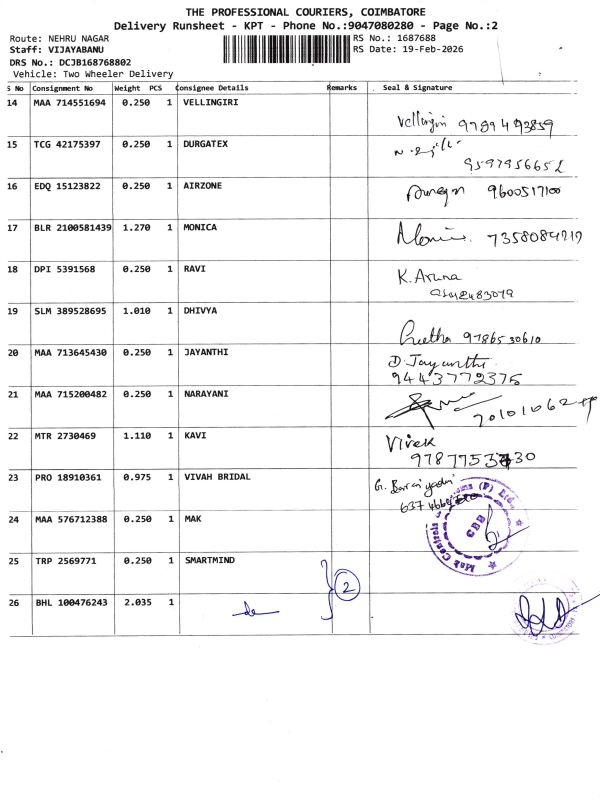 THE PROFESSIONAL COURIERS, COIMBATORE
Delivery Runsheet - KPT - Phone No.:9047080280 - Page No.:2
Route: NEHRU NAGAR RS No.: 1687688
Staff: VIJAYABANU RS Date: 19-Feb-2026
DRS No.: DCJB168768802
Vehicle: Two Wheeler Delivery
S No Consignment No Weight PCS Consignee Details Remarks Seal & Signature
14 MAA 714551694 0.250 1 VELLINGIRI
Vellingiri 9789493859
15 TCG 42175397 0.250 1 DURGATEX
9597956652
16 EDQ 15123822 0.250 1 AIRZONE
9600517100
17 BLR 2100581439 1.270 1 MONICA
Monica 7358084217
18 DPI 5391568 0.250 1 RAVI
K. Aruna
19 SLM 389528695 1.010 1 DHIVYA
Geetha 9786530610
20 MAA 713645430 0.250 1 JAYANTHI
D. Jayanthi
9443772375
21 MAA 715200482 0.250 1 NARAYANI
22 MTR 2730469 1.110 1 KAVI
Vivek
23 PRO 18910361 0.975 1 VIVAH BRIDAL
G.
24 MAA 576712388 0.250 1 MAK
CBE
25 TRP 2569771 0.250 1 SMARTMIND
2
26 BHL 100476243 2.035 1